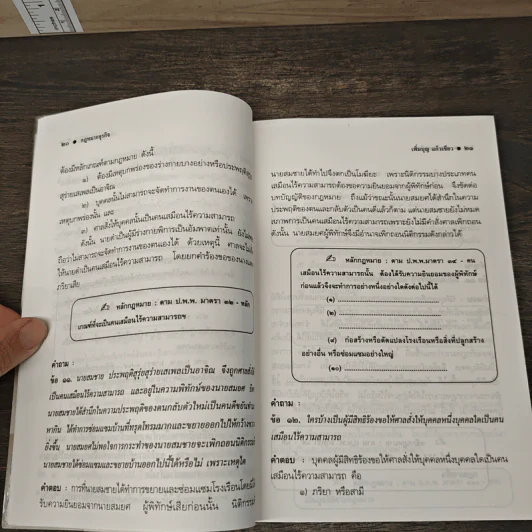 ๒๐ ● กฎหมายธุรกิจ
ต้องมีหลักเกณฑ์ตามกฎหมาย ดังนี้
๑) ต้องมีเหตุบกพร่องของร่างกายบางอย่างหรือประพฤติ
สุรุ่ยสุร่ายเสเพลเป็นอาจิณ
๒) บุคคลนั้นไม่สามารถจะจัดทำการงานของตนเองได้ เพราะ
เหตุบกพร่องนั้น และ
๓) ศาลสั่งให้บุคคลนั้นเป็นคนเสมือนไร้ความสามารถ
ดังนั้น นายดำเป็นผู้มีร่างกายพิการเป็นอัมพาตเท่านั้น ยังไม่
ถือว่าไม่สามารถจะจัดทำการงานของตนเองได้ ด้วยเหตุนี้ ศาลจะไม่
ให้นายดำเป็นคนเสมือนไร้ความสามารถ โดยยกคำร้องขอของนาง
ภริยาเสีย
หลักกฎหมาย : ตาม ป.พ.พ. มาตรา ๓๒ - หลัก
เกณฑ์ที่จะเป็นคนเสมือนไร้ความสามารถ
คำถาม :
ข้อ ๑๑. นายสมชาย ประพฤติสุรุ่ยสุร่ายเสเพลเป็นอาจิณ จึงถูกศาลสั่งให้
เป็นคนเสมือนไร้ความสามารถ และอยู่ในความพิทักษ์ของนายสมยศ
นายสมชายได้สำนึกในความประพฤติของตนกลับตัวใหม่เป็นคนดีขยันทำมา
หากิน ได้ทำการซ่อมแซมบ้านที่ทรุดโทรมมากและขยายออกไปให้กว้างขวาง
ยิ่งขึ้น นายสมยศไม่พอใจการกระทำของนายสมชายจะเพิกถอนนิติกรรมที่
นายสมชายได้ซ่อมแซมและขยายบ้านออกไปนี้ได้หรือไม่ เพราะเหตุใด
คำตอบ : การที่นายสมชายได้ทำการขยายและซ่อมแซมโรงเรือนโดยมิได้
รับความยินยอมจากนายสมยศ ผู้พิทักษ์เสียก่อนนั้น นิติกรรมที่
เพิ่มบุญ แก้วเขียว ● ๒๑
นายสมชายได้ทำไปจึงตกเป็นโมฆียะ เพราะนิติกรรมบางประเภทคน
เสมือนไร้ความสามารถต้องขอความยินยอมจากผู้พิทักษ์ก่อน จึงขัดต่อ
บทบัญญัติของกฎหมาย ถึงแม้ว่าขณะนั้นนายสมยศได้สำนึกในความ
ประพฤติของตนและกลับตัวเป็นคนดีแล้วก็ตาม แต่นายสมชายยังไม่หมด
สภาพการเป็นคนเสมือนไร้ความสามารถเพราะยังไม่มีคำสั่งศาลเพิกถอน
ดังนั้น นายสมยศผู้พิทักษ์จึงมีอำนาจเพิกถอนนิติกรรมดังกล่าวได้
หลักกฎหมาย : ตาม ป.พ.พ.มาตรา ๓๔ - คน
เสมือนไร้ความสามารถนั้น ต้องได้รับความยินยอมของผู้พิทักษ์
ก่อนแล้วจึงจะทำการอย่างหนึ่งอย่างใดดังต่อไปนี้ได้
(๑)
(๒)
(๙) ก่อสร้างหรือดัดแปลงโรงเรือนหรือสิ่งที่ปลูกสร้าง
อย่างอื่น หรือซ่อมแซมอย่างใหญ่
(๑๐)
คำถาม :
ข้อ ๑๒. ใครบ้างเป็นผู้มีสิทธิร้องขอให้ศาลสั่งให้บุคคลหนึ่งบุคคลใดเป็นคน
เสมือนไร้ความสามารถ
คำตอบ : บุคคลผู้มีสิทธิร้องขอให้ศาลสั่งให้บุคคลหนึ่งบุคคลใดเป็นคน
เสมือนไร้ความสามารถ คือ
๑) ภริยา หรือสามี